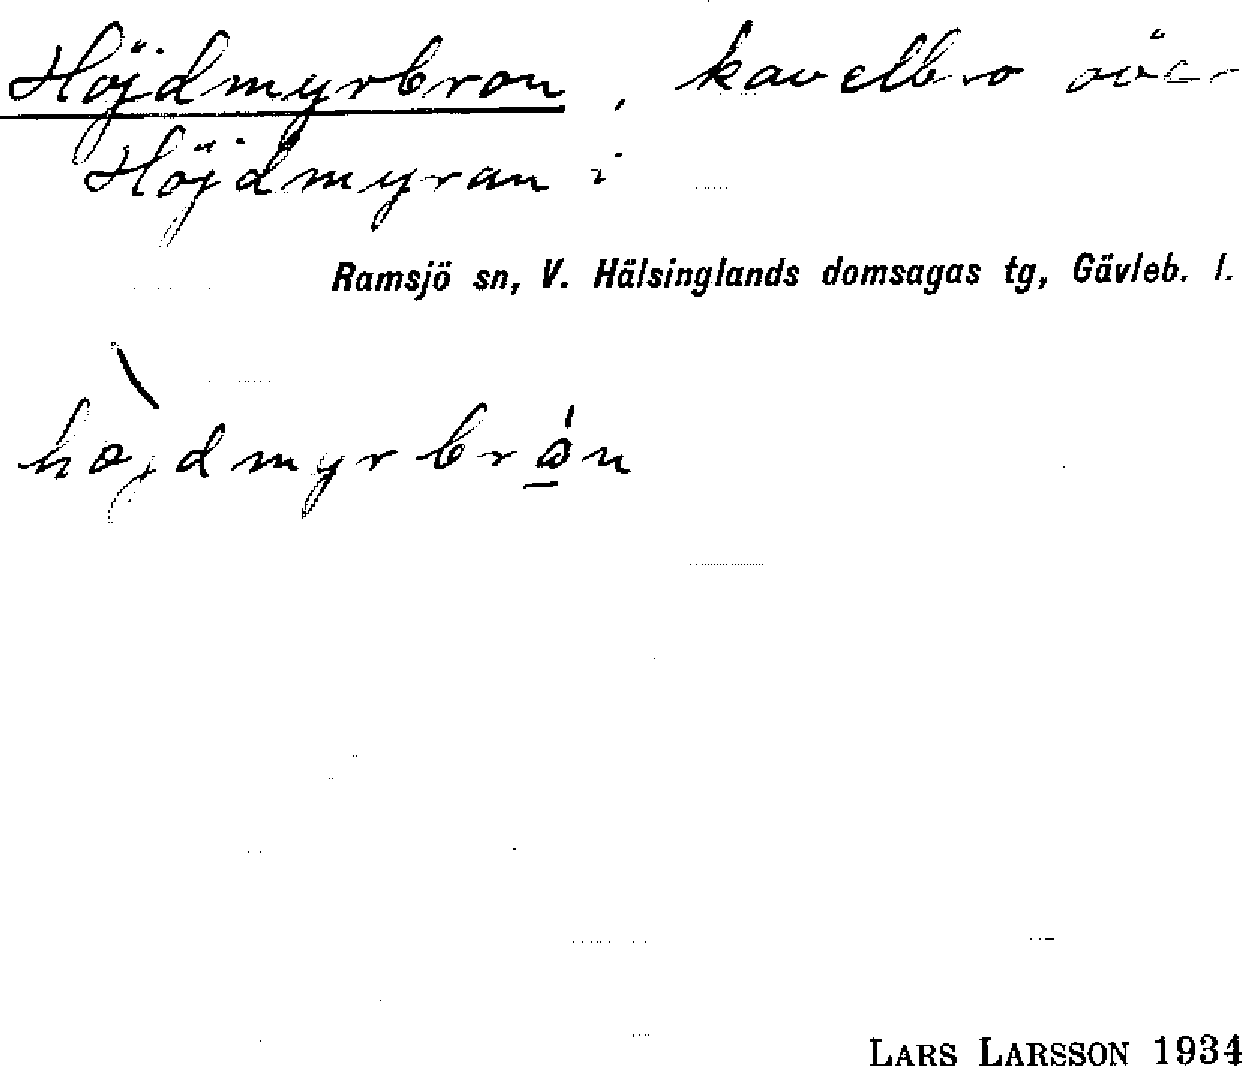 Höjdmyrbron, kavelbro över
Höjdmyran i
Ramsjö sn, V. Hälsinglands domsagas tg, Gävleb. l.
LARS LARSSON 1934